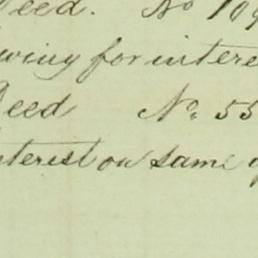 Deed. No 109
owing for intere
Deed No. 55
nterest on same